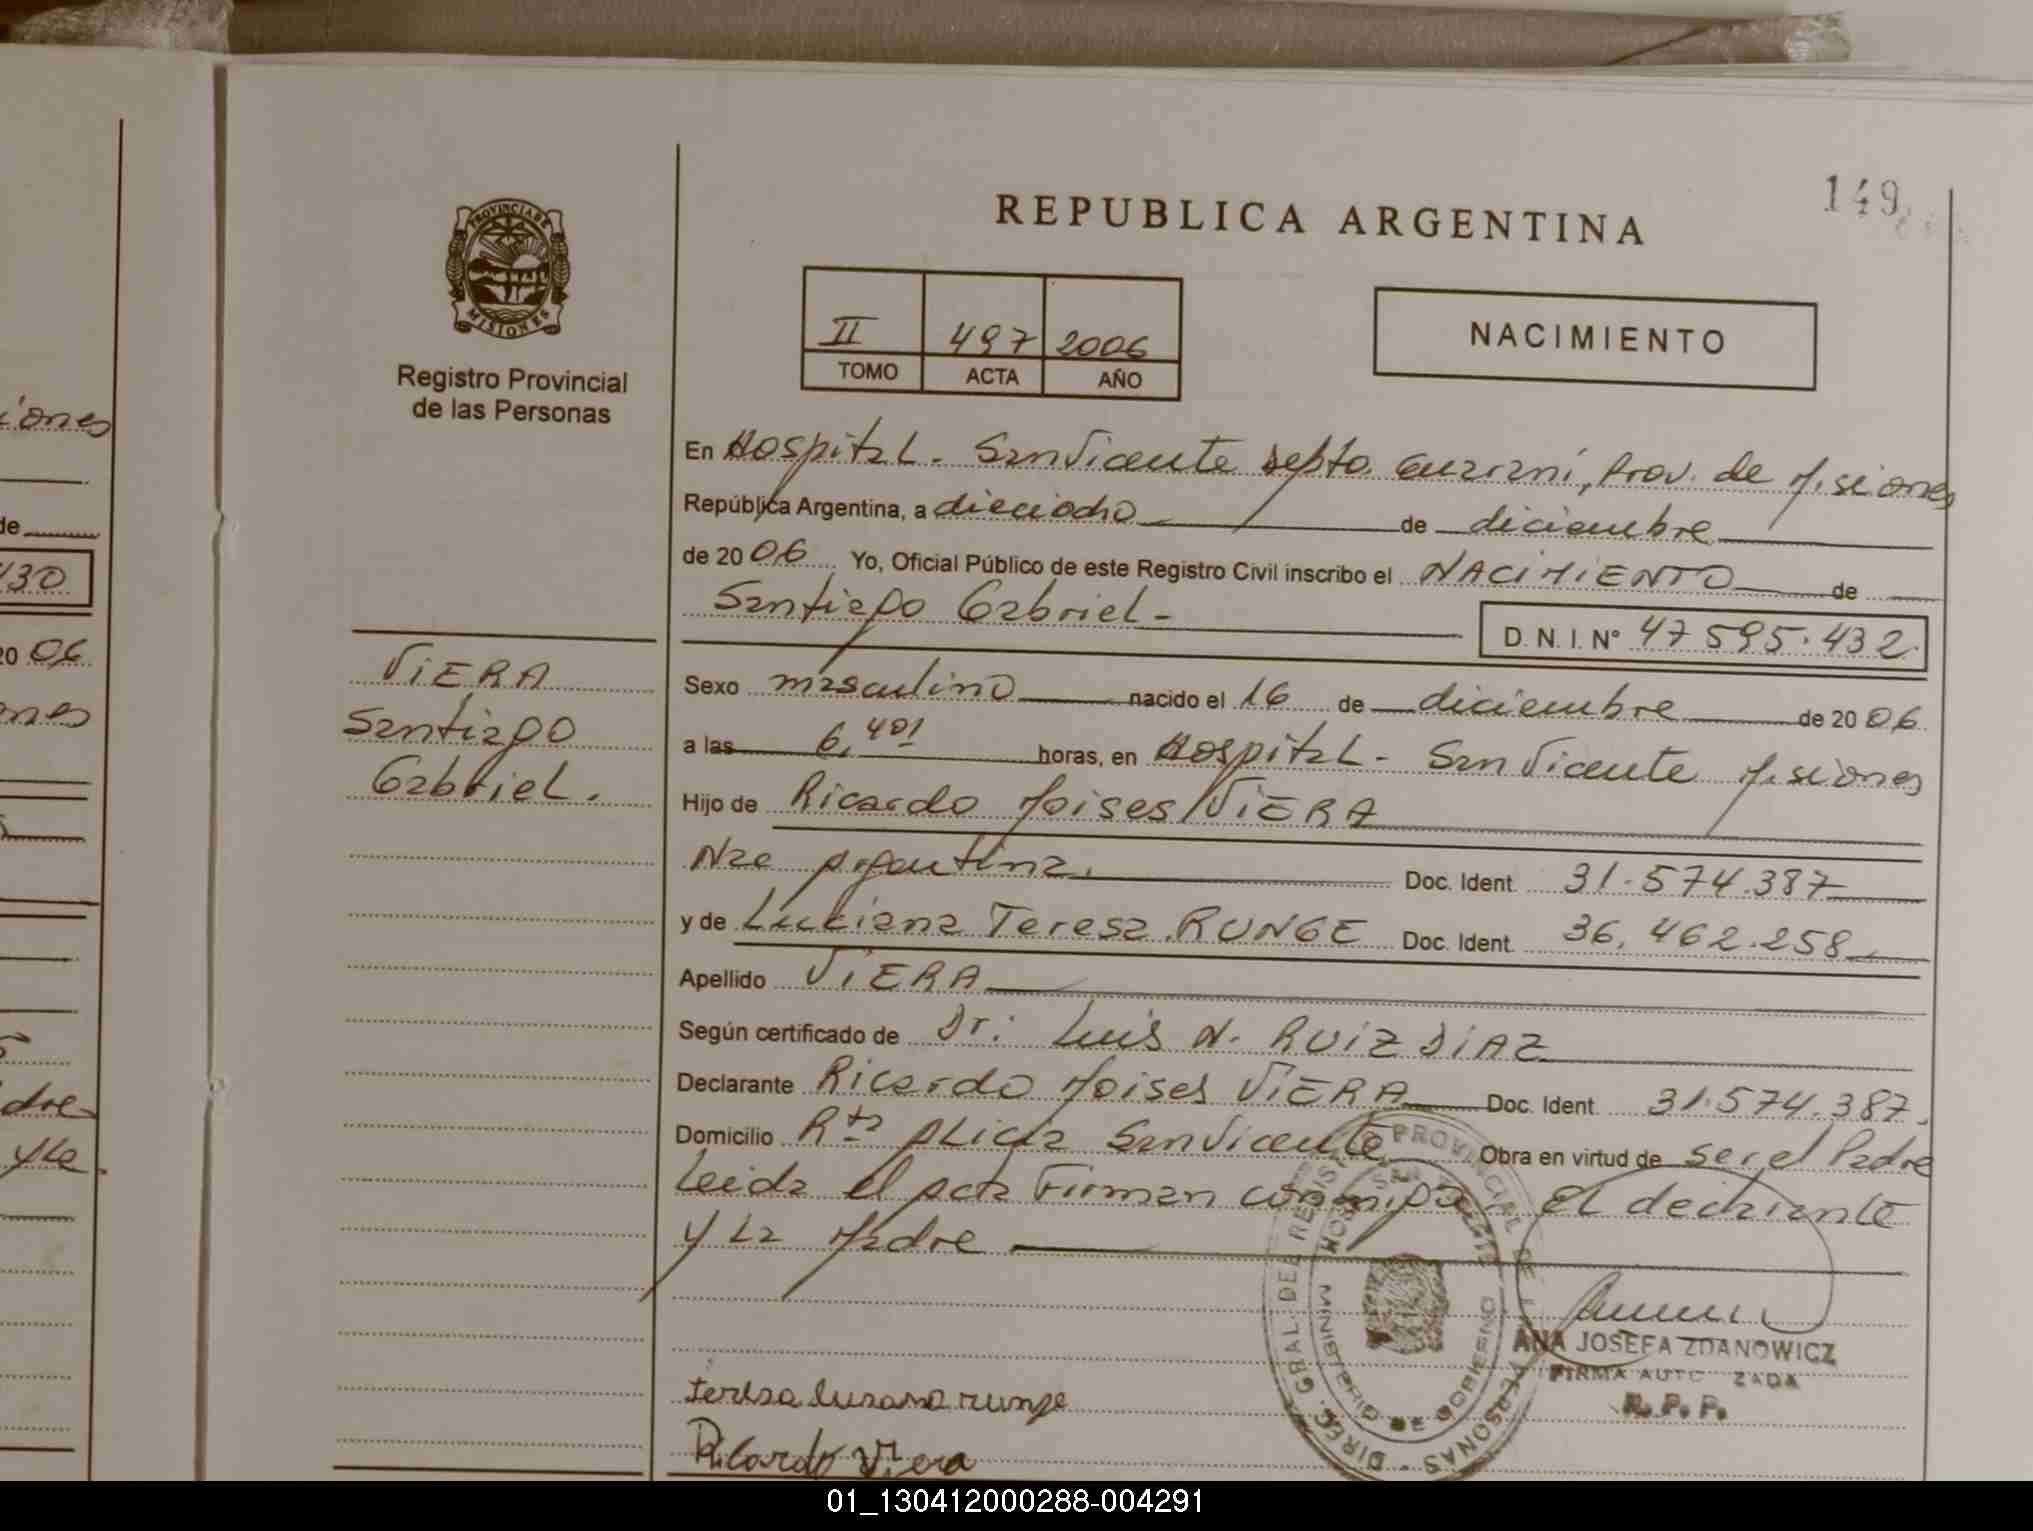 REPUBLICA ARGENTINA
149
PROVINCIA DE
MISIONES
Registro Provincial
de las Personas
II 497 2006
TOMO ACTA AÑO
NACIMIENTO
En Hospital - San Vicente Depto. Guaraní, Prov. de Misiones
República Argentina, a dieciocho de diciembre
de 2006 Yo, Oficial Público de este Registro Civil inscribo el NACIMIENTO de
Santiago Gabriel -
D. N. I. Nº 47 595.432.
VIERA
Santiago
Gabriel.
Sexo masculino nacido el 16 de diciembre de 2006
a las 6,40 horas, en Hospital - San Vicente Misiones
Hijo de Ricardo Moises VIERA
Nac Argentina. Doc. Ident. 31.574.387
y de Luciana Teresa RUNGE Doc. Ident. 36.462.258
Apellido VIERA
Según certificado de Dr: Luis N. RUIZ DIAZ
Declarante Ricardo Moises VIERA Doc. Ident. 31.574.387.
Domicilio Rta Alicia San Vicente Obra en virtud de ser el Padre
Leida el acta Firman conmigo El declarante
y La Madre
ANA JOSEFA ZDANOWICZ
FIRMA AUTO ZADA
R. P. P.
DIREC. GRAL. DEL REGIS PROVINCIAL DE PERSONAS
MINISTERIO DE GOBIERNO
runge
Ricardo Viera
iones
de
430
20 06
ones
dre
y la
01_130412000288-004291